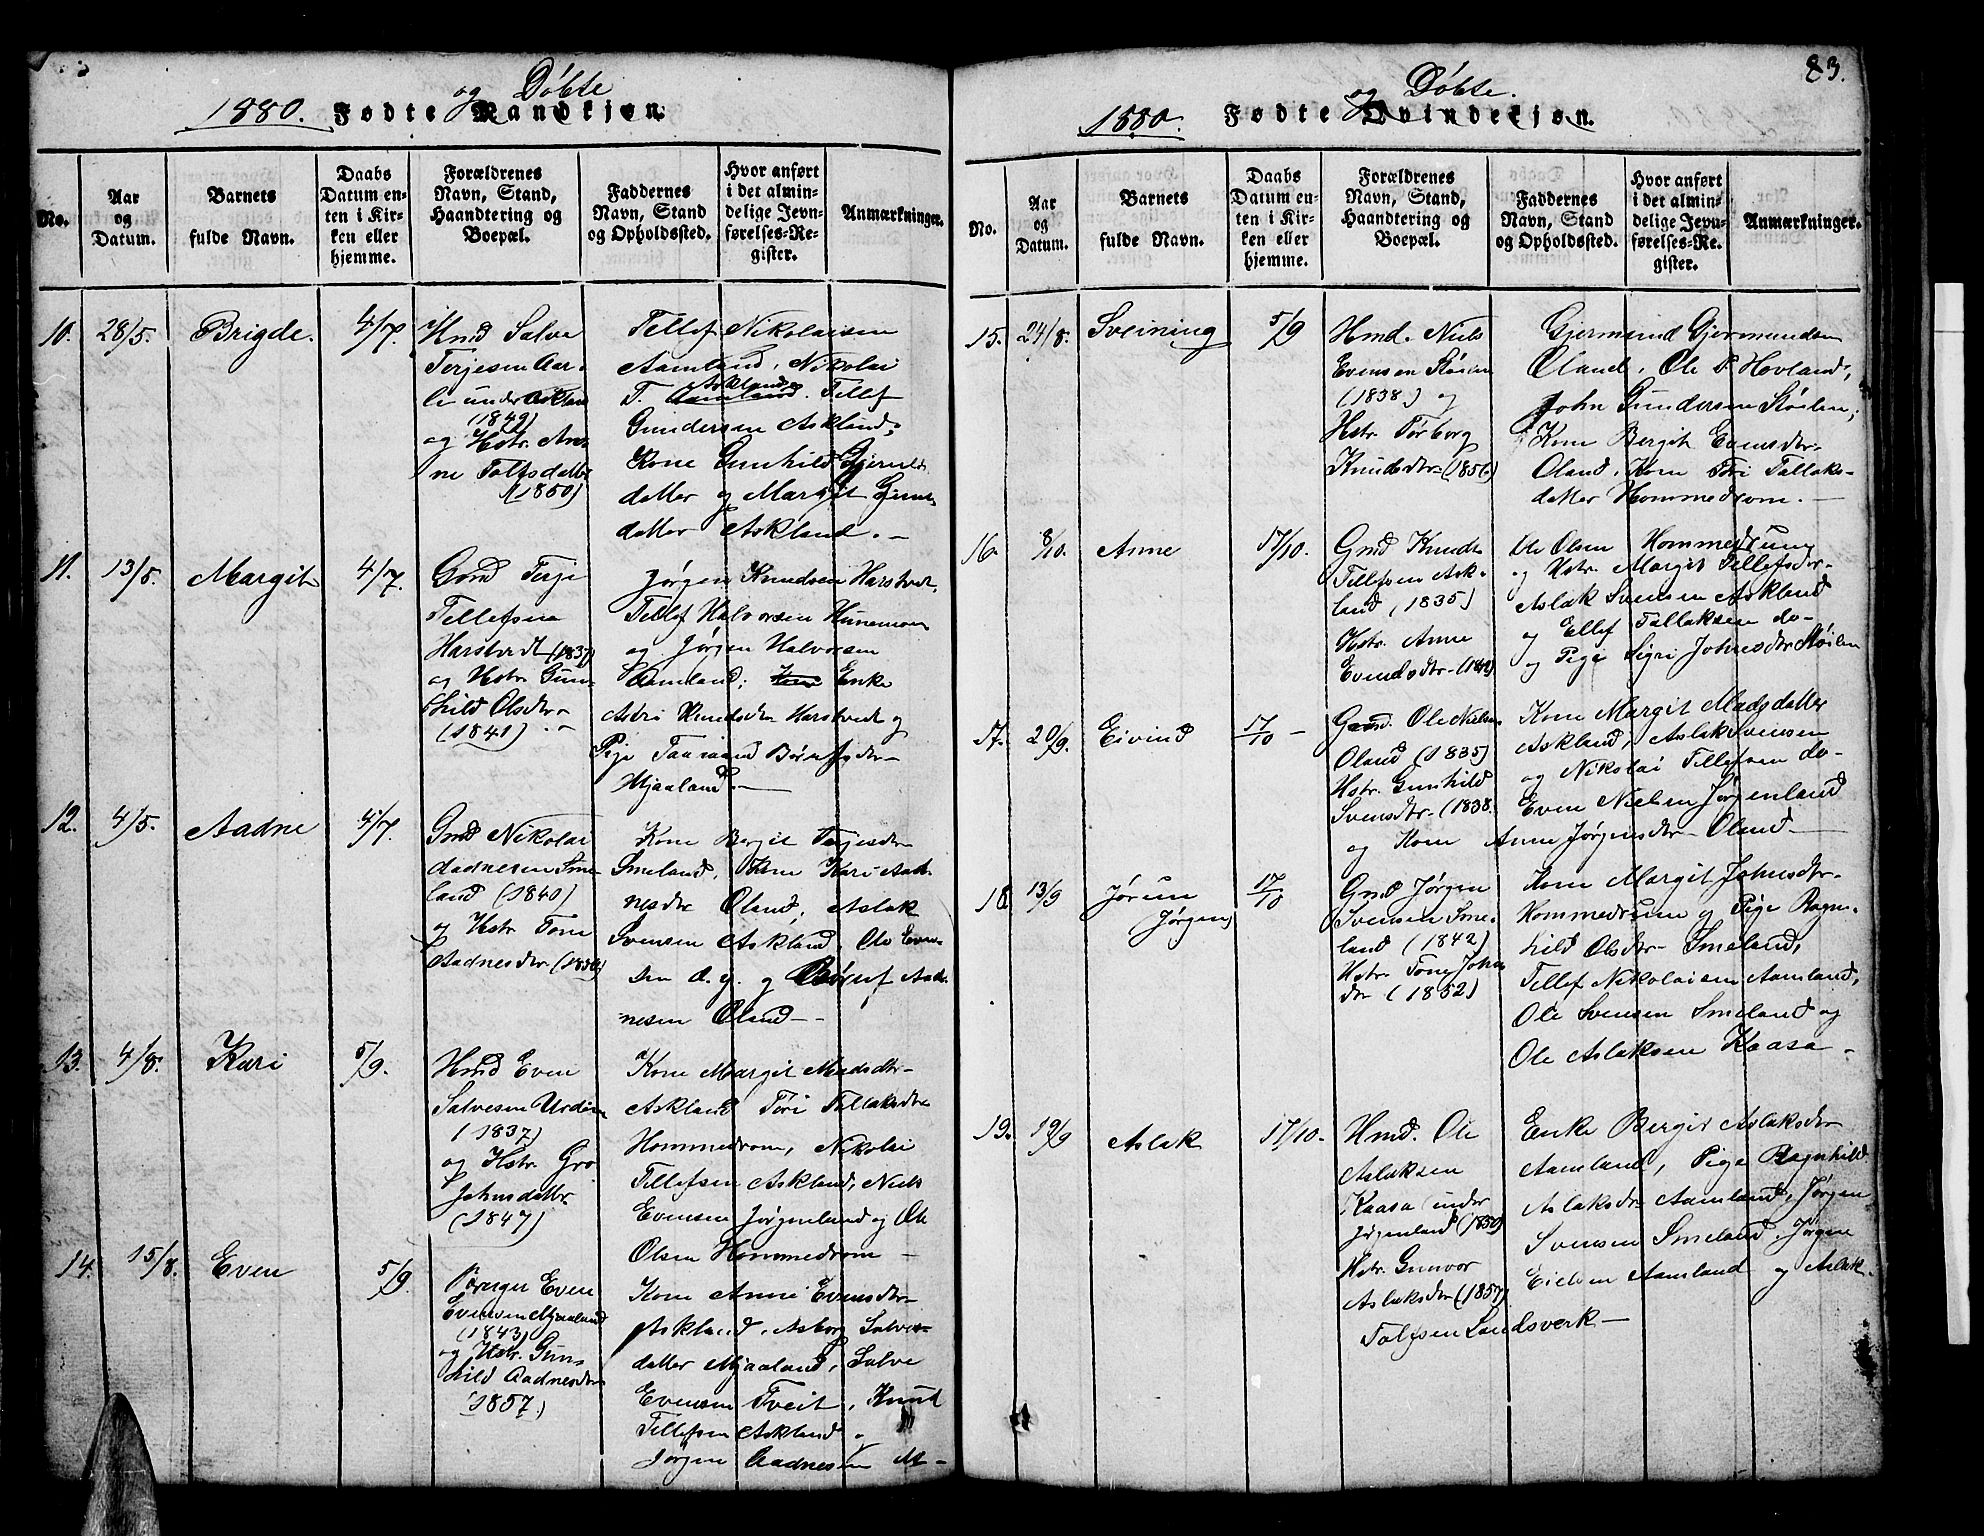 1880. Fødte og Døbte Mandkjøn.
No.
Aar
og
Datum.
Barnets
fulde Navn.
Daabs
Datum en-
ten i Kir-
ken eller
hjemme.
Forældrenes
Navn, Stand,
Haandtering og
Boepæl.
Faddernes
Navn, Stand
og Opholdssted.
Hvor anført
i det almin-
delige Jevn-
førelses-Re-
gister.
Anmærkninger.
10. 28/5. Brigde. 4/7.
Hmd Salve
Terjesen Aar-
li under Askland
(1842)
og Hstr. An-
ne Tolfsdatter
(1850)
Tellef Nikolaisen
Aamland, Nikolai
T. Aamland Askland. Tellef
Gundersen Askland,
Kone Gunhild
datter og Margit
datter Askland. —
11. 13/5. Margit 4/7.
Gmd Terje
Tellefsen
Harstvedt (1837)
og Hstr. Gun-
hild Olsdtr
(1841). —
Jørgen Knudsen Harstvedt,
Tellef Halvorsen
og Jørgen Halvorsen
Aamland; Kone Enke
Knudsdtr Harstvedt og
Pige
Mjaaland. —
12. 4/5. Aadne 4/7.
Gmd Nikolai
Aadnesen Sme-
land (1840)
og Hstr Tone
Aadnesdtr.
Kone Bergit Terjesdtr
Smeland, Kone Kari Aad-
nesdtr Øland, Aslak
Svensen Askland, Ole Even-
sen d. y. og Aad-
nesen Øland —
13. 4/8. Kari 5/9.
Hmd Even
Salvesen
(1837)
og Hstr. Gro
Johnsdatter
(1847)
Kone Margit Madsdtr
Askland Tori Tallaksdtr
Hommedrom, Nikolai
Tellefsen Askland, Niels
Evensen Jørgenland og Ole
Olsen Hommedrom —
14. 15/8. Even 5/9.
Even
Evensen Mjaaland
(1843)
og Hstr. Gun-
hild Aadnesdtr
(1857.)
Kone Anne Evensdtr
Askland, Asborg Salves-
datter Mjaaland, Salve
Evensen Tveit, Knud
Tellefsen Askland,
Jørgen Aadnesen M-
83.
1880. Fødte og Døbte. Qvindekjøn.
No.
Aar
og
Datum.
Barnets
fulde Navn.
Daabs
Datum en-
ten i Kir-
ken eller
hjemme.
Forældrenes
Navn, Stand,
Haandtering og
Boepæl.
Faddernes
Navn, Stand
og Opholdssted.
Hvor anført
i det almin-
delige Jevn-
førelses-Re-
gister.
Anmærkninger.
15. 24/8. Sveining 5/9
Hmd. Niels
Evensen Støilen
(1838) og
Hstr. Torborg
Knudsdtr
Gjermund Gjermundsen
Øland, Ole P. Hovland,
John Gundersen Støilen,
Kone Bergit Evensdtr
Øland, Kone Tori Tallaks-
datter Hommedrom. —
16. 8/10. Anne 17/10.
Gmd Knud
Tellefsen Ask-
land (1835)
Hstr. Anne
Evensdtr
Ole Olsen Hommedrom
og Hstr. Margit Tellefsdtr
Aslak Svensen Askland
og Ellef Tallaksen do-
og Pige Sigri Johnsdtr Støilen
17. 20/9. Eivind 17/10 —
Gmd. Ole Nielsen
Øland (1835)
Hstr. Gunhild
Svensdtr (1838.
Kone Margit Madsdatter
Askland, Aslak Svensen
og Nikolai Tellefsen do-
Even Nielsen Jørgenland
og Kone Anne Jørgensdtr Øland —
18. 13/9 Jørun
Jørgen) 17/10
Gmd Jørgen
Svensen Sme-
land (1842)
Hstr. Tone Johns-
dtr (1852)
Kone Margit Johnsdtr
Hommedrom og Pige Ragn-
hild Olsdtr Smeland,
Tellef Nikolaisen Aamland,
Ole Svensen Smeland og
Ole Aslaksen Kaasa —
19. 19/9 Aslak 17/10.
Hmd. Ole
Aslaksen
Kaasa under
Jørgenland (1850)
Hstr. Gunvor
Aslaksdtr (1857)
Enke Bergit Aslaksdtr
Aamland, Pige Ragnhild
Aslaksdtr Aamland, Jørgen
Svensen Smeland, Jørgen
Aamland og Aslak
Tolfsen Landsverk —